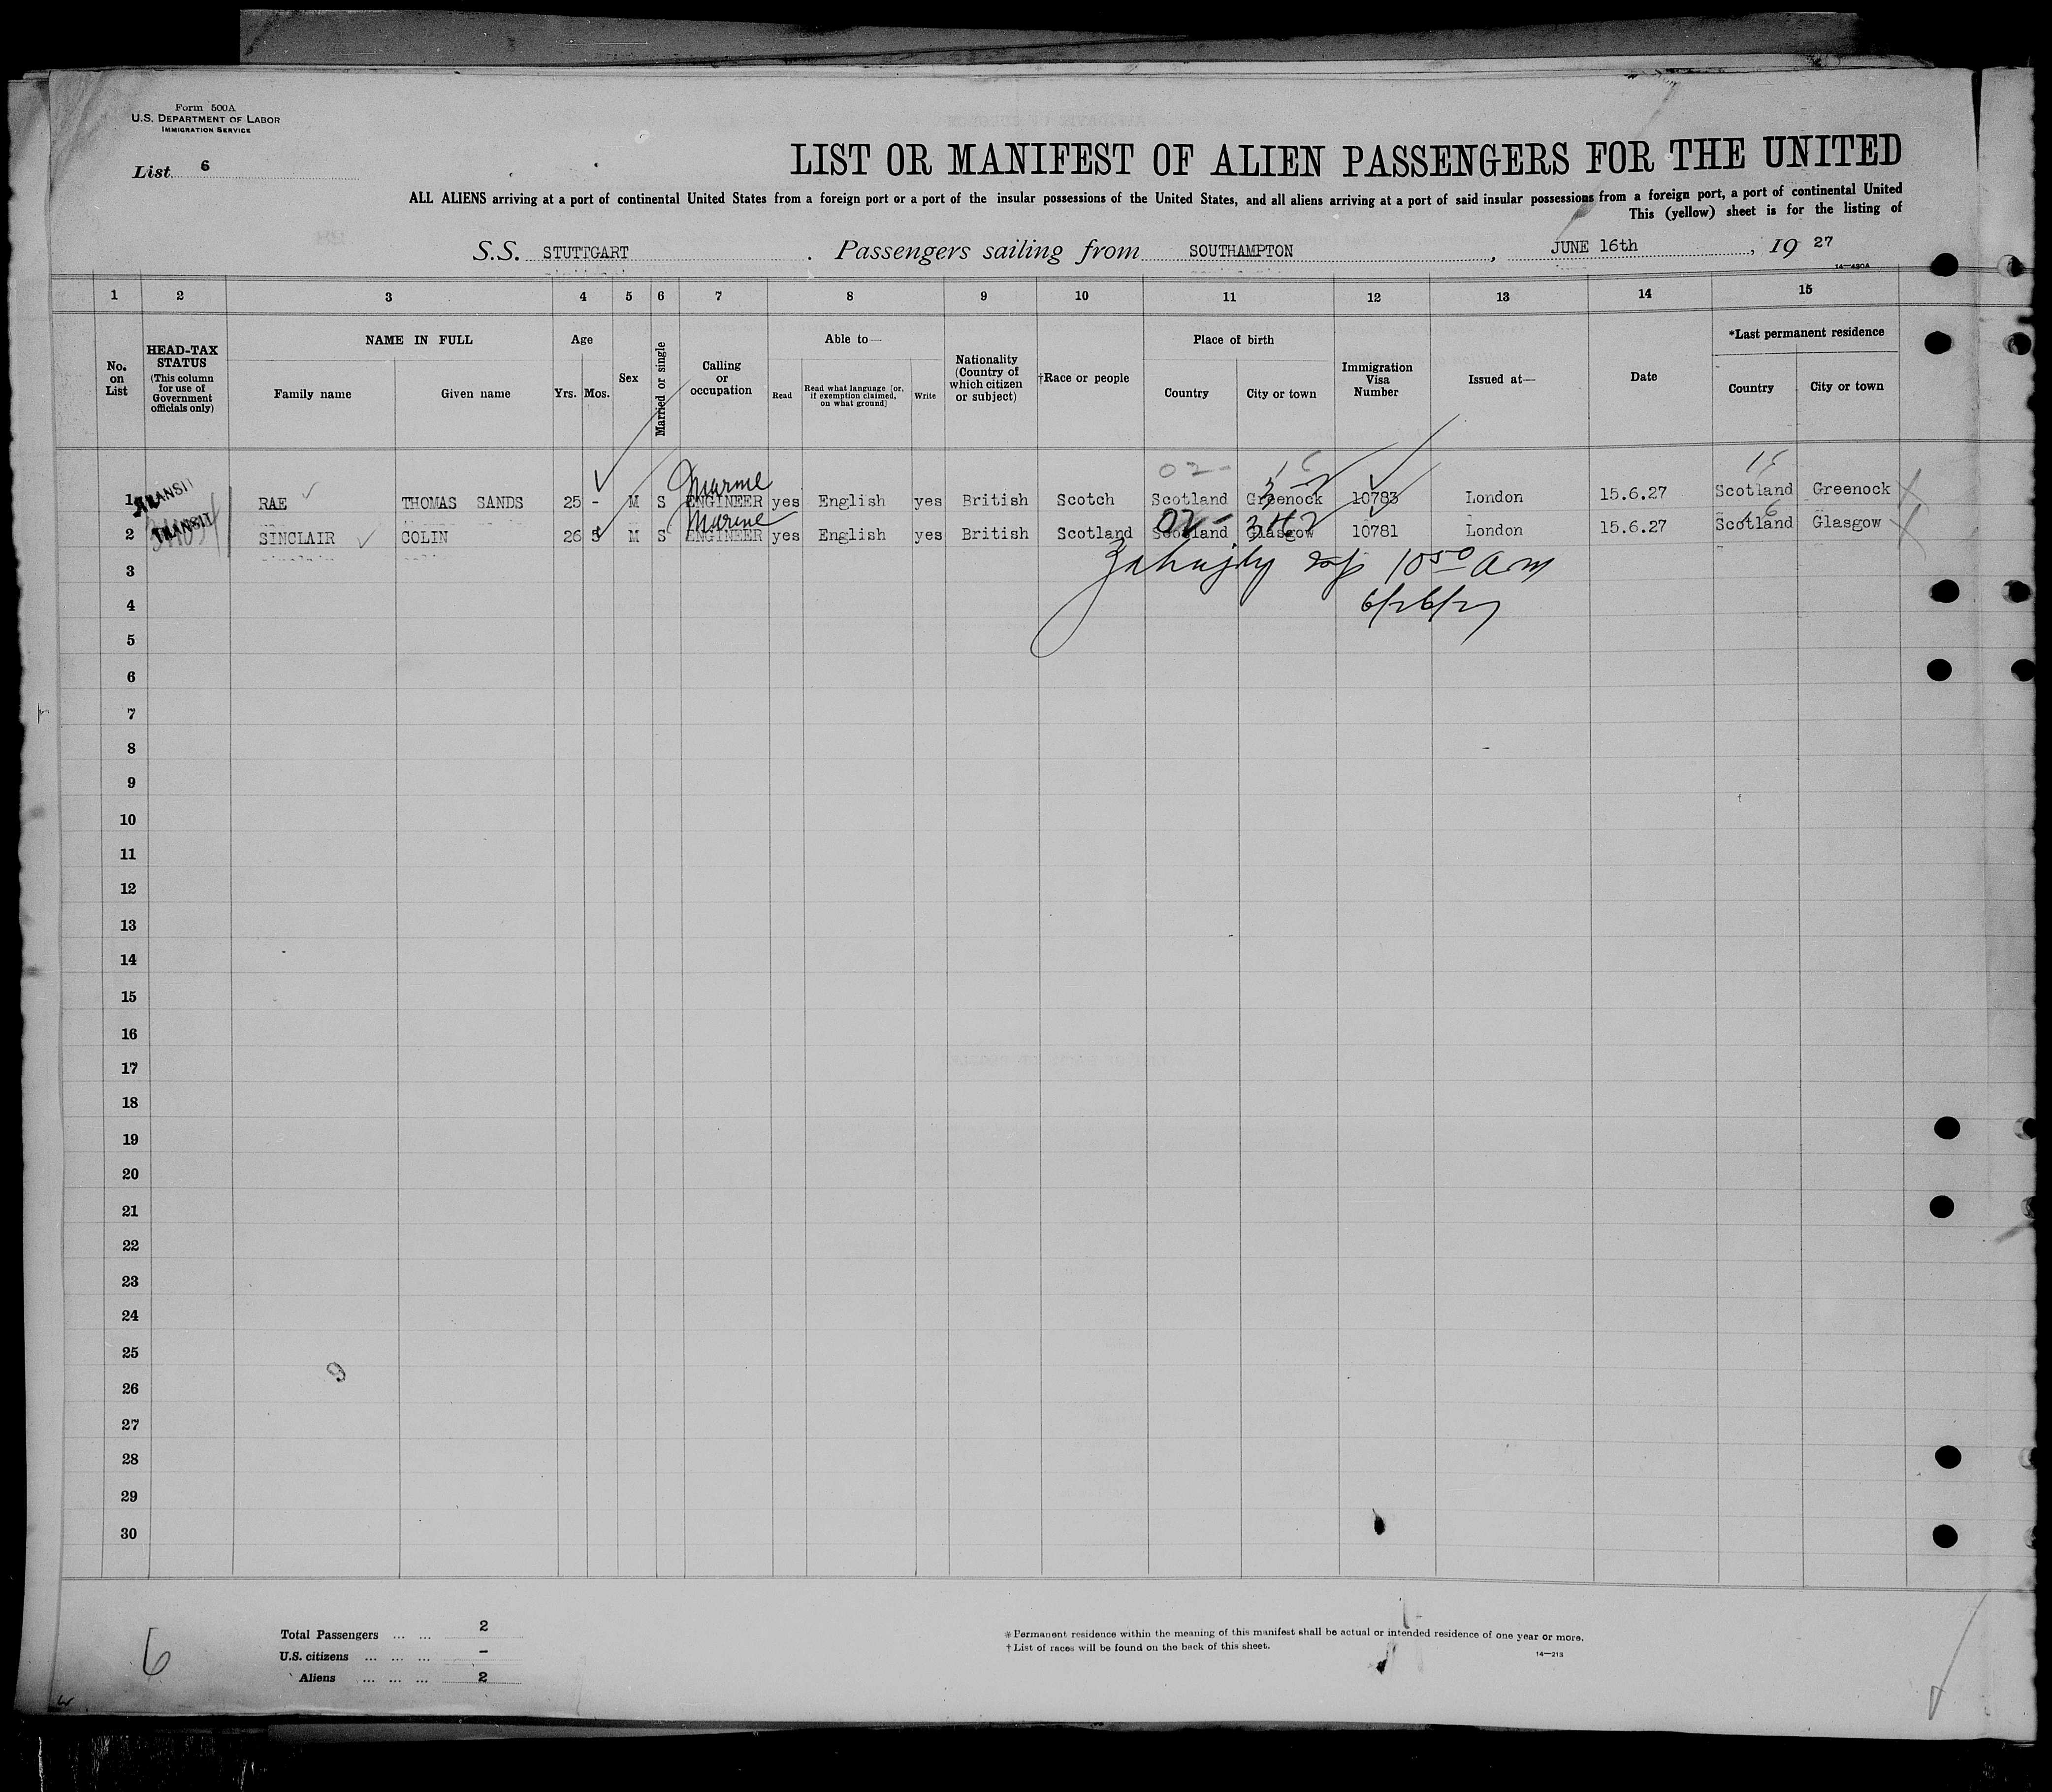 Form 500A
U.S. DEPARTMENT OF LABOR
IMMIGRATION SERVICE
List 6
LIST OR MANIFEST OF ALIEN PASSENGERS FOR THE UNITED
ALL ALIENS arriving at a port of continental United States from a foreign port or a port of the insular possessions of the United States, and all aliens arriving at a port of said insular possessions from a foreign port, a port of continental United
This (yellow) sheet is for the listing of
S.S. STUTTGART . Passengers sailing from SOUTHAMPTON , JUNE 16th , 19 27
14—480A
1 2 3 4 5 6 7 8 9 10 11 12 13 14 15
No. on List
HEAD-TAX STATUS (This column for use of Government officials only)
NAME IN FULL
Family name
Given name
Age
Yrs. Mos.
Sex
Married or single
Calling or occupation
Able to—
Read
Read what language [or, if exemption claimed, on what ground]
Write
Nationality (Country of which citizen or subject)
†Race or people
Place of birth
Country
City or town
Immigration Visa Number
Issued at—
Date
*Last permanent residence
Country
City or town
02-
Marine
1 TRANSIT RAE THOMAS SANDS 25 - M S ENGINEER yes English yes British Scotch Scotland Greenock 10783 London 15.6.27 Scotland Greenock
Marine
02-
2 TRANSIT SINCLAIR COLIN 26 5 M S ENGINEER yes English yes British Scotland Scotland Glasgow 10781 London 15.6.27 Scotland Glasgow
3 10 50 am
4 6/26/27
5
6
7
8
9
10
11
12
13
14
15
16
17
18
19
20
21
22
23
24
25
26
27
28
29
30
6
Total Passengers ... ... 2
U.S. citizens ... ... ... -
Aliens ... ... ... 2
*Permanent residence within the meaning of this manifest shall be actual or intended residence of one year or more.
†List of races will be found on the back of this sheet.
14—213